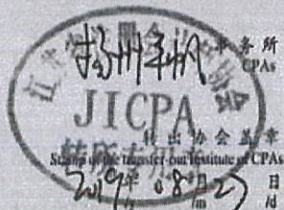 扬州 事务所
CPAs
JICPA
转所专用章
转出协会盖章
Stamp of the transfer-out Institute of CPAs
2019年 08月27日
/y /m /d